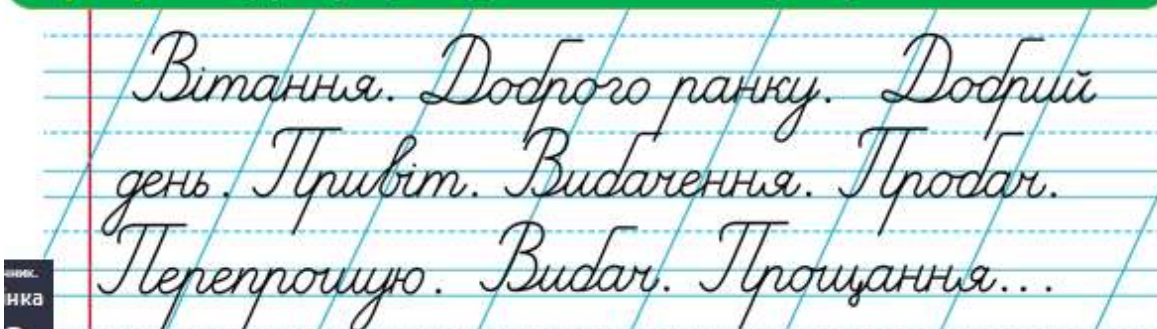 Вітання. Доброго ранку. Добрий
день. Привіт. Вибачення. Пробач.
Перепрошую. Вибач. Прощання...
нка